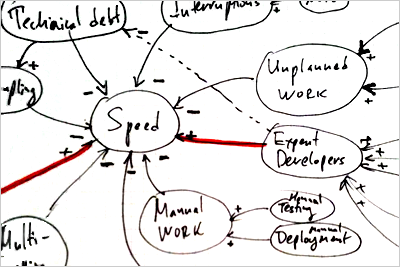 Technical debt
Interruptions
Unplanned
WORK
Speed
Expert
Developers
Manual
WORK
Manual
Testing
Manual
Deployment
Multi-